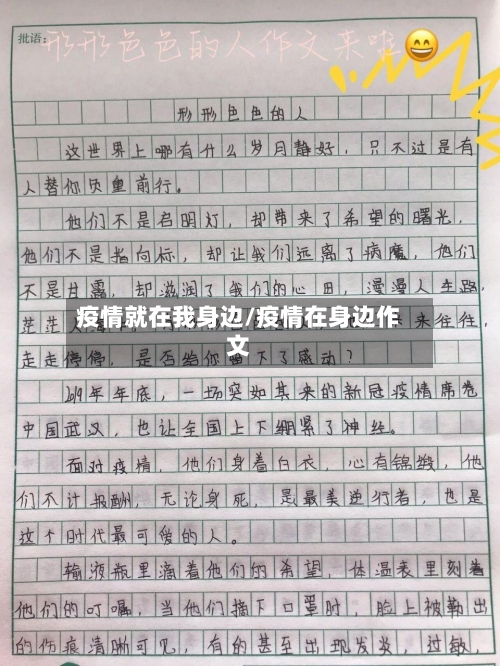 批语：
形形色色的人作文来啦
形形色色的人
这世界上哪有什么岁月静好，只不过是有
人替你负重前行。
他们不是启明灯，却带来了希望的曙光，
他们不是指向标，却让我们远离了病魔，他们
不是甘露，却滋润了我们的心田，漫漫人生路，
茫茫
来来往往，
疫情就在我身边/疫情在身边作
文
走走停停，是否给你留下了感动？
2019年年底，一场突如其来的新冠疫情席卷
中国武汉，也让全国上下绷紧了神经。
面对疫情，他们身着白衣，心有锦缎，他
们不计报酬，无论身死，是最美逆行者，也是
这个时代最可爱的人。
输液瓶里滴着他们的希望，体温表里刻着
他们的叮嘱，当他们摘下口罩时，脸上被勒出
的伤痕清晰可见，有的甚至出现发炎，过敏，